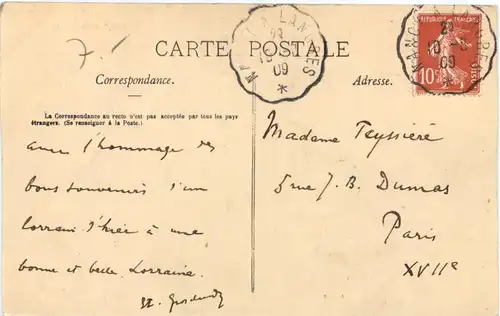 7.1
CARTE POSTALE
Correspondance.
Adresse.
La Correspondance au recto n'est pas acceptée par tous les pays
étrangers. (Se renseigner à la Poste.)
avec l'hommage des
bons souvenirs d'un
lorrain d'hier à une
bonne et belle Lorraine.
Madame Teyssière
5 rue J. B. Dumas
Paris
XVIIe
A LANGRES
09
*
REPUBLIQUE FRANÇAISE
10
POSTES
09
*